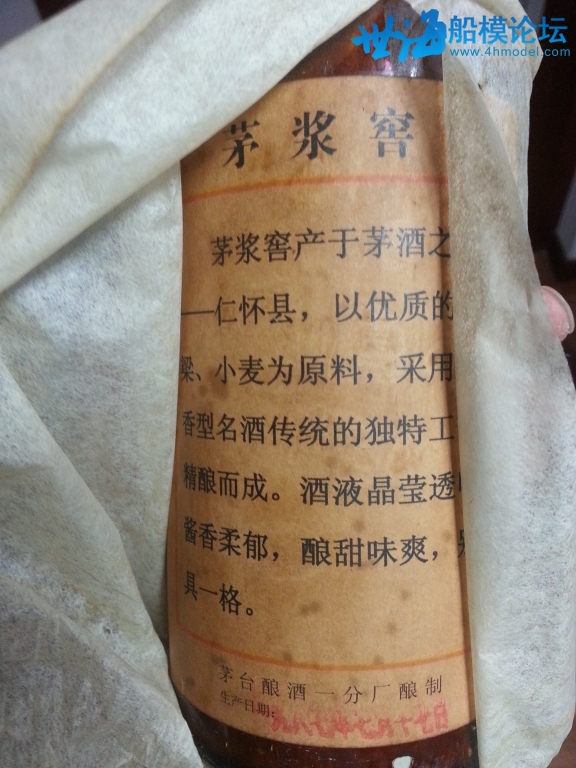 世海船模论坛
www.4hmodel.com
茅浆窖
茅浆窖产于茅酒之
——仁怀县，以优质的
粱、小麦为原料，采用
香型名酒传统的独特工
精酿而成。酒液晶莹透
酱香柔郁，酿甜味爽，
具一格。
茅台酿酒一分厂酿制
生产日期:
九八七年七月十七日